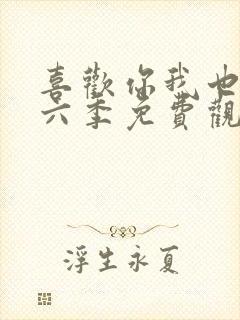 喜歡你我也
六季免費觀
浮生永夏